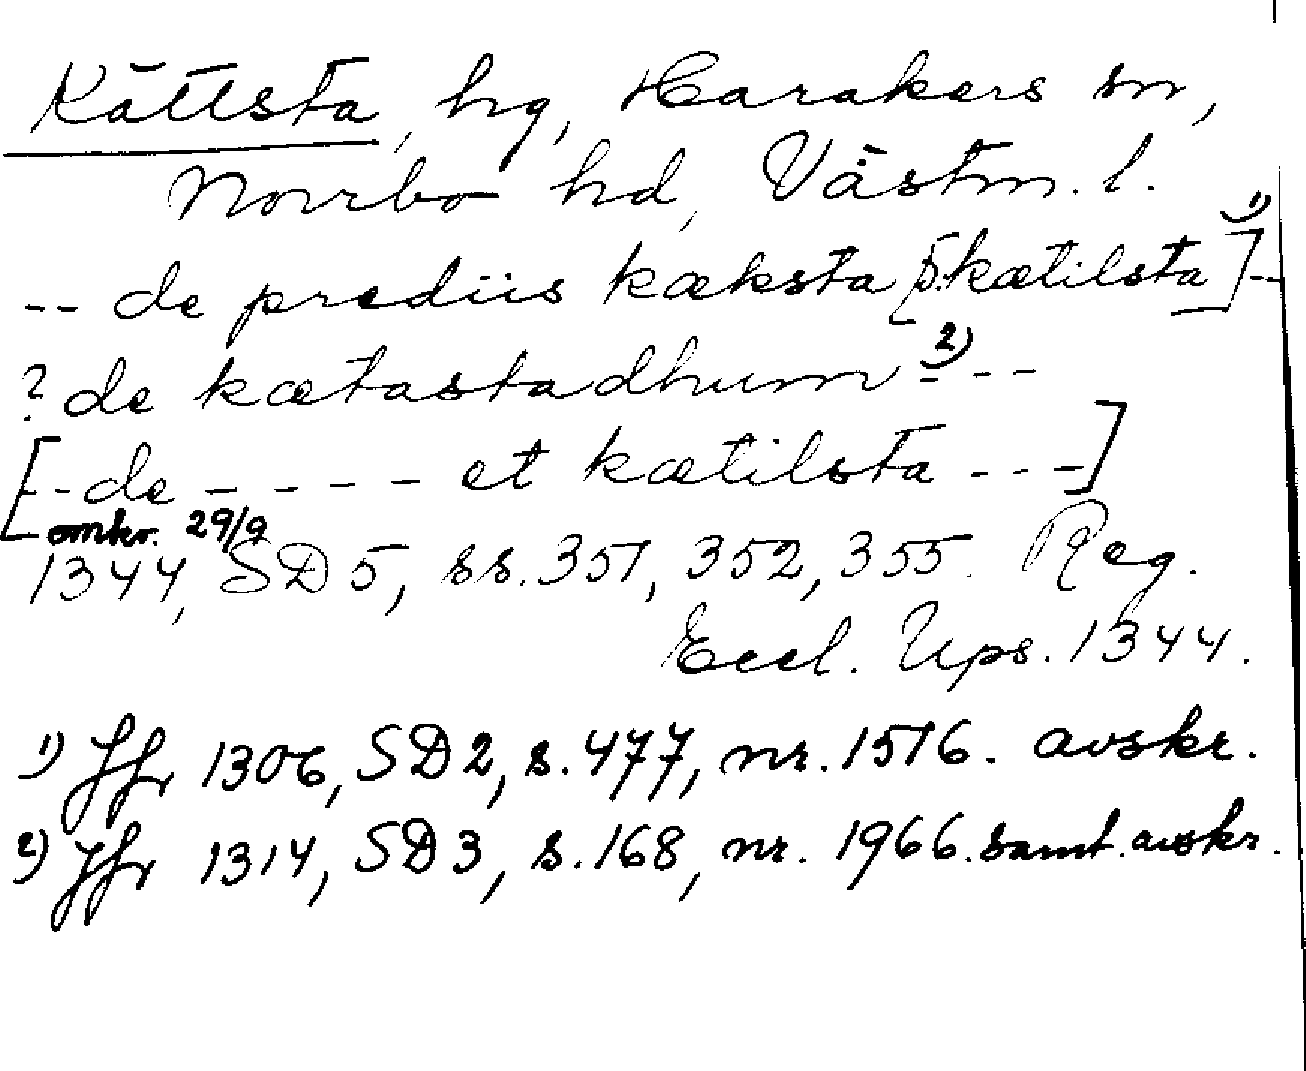 Kättsta, hg, Harakers sn,
Norrbo hd, Västm. l.
-- de prediis kæksta [5.kætilsta]¹⁾--
? de kætastadhum²⁾---
[-- de ----- et kætilsta ---]
omkr. 29/9
1344, SD 5, ss. 351, 352, 355. Reg.
Eccl. Ups. 1344.
1) Jfr 1306, SD 2, s. 477, nr. 1516. avskr.
2) Jfr 1314, SD 3, s. 168, nr. 1966. samt. avskr.